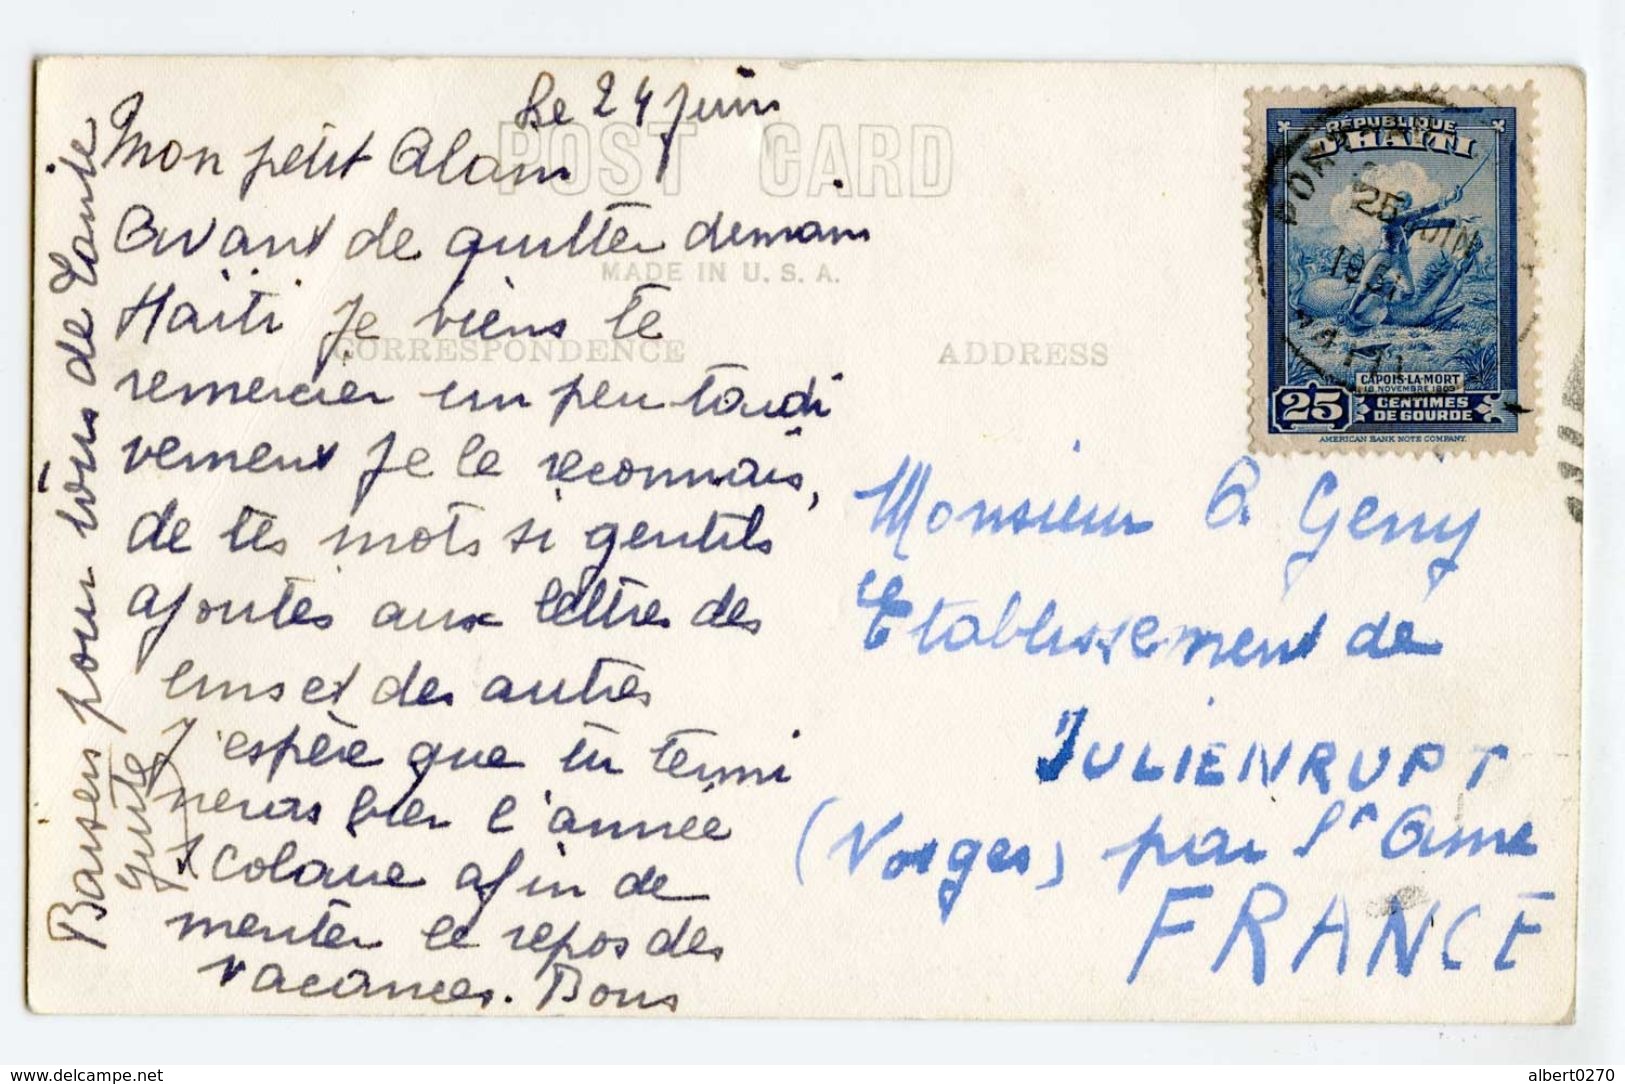 Le 24 Juin
POST CARD
Mon petit Alain
Avant de quitter demain
MADE IN U.S.A.
Haïti je viens te
CORRESPONDENCE
ADDRESS
remercier un peu tardi
vement je le reconnais,
de tes mots si gentils
ajoutés aux lettres des
uns et des autres
J'espère que tu termi
neras bien l'année
scolaire afin de
meriter le repos des
vacances. Bons
Baisers pour vous de Tante
Guite
REPUBLIQUE
D'HAITI
25 JUIN
1951
HAITI
CAPOIS-LA-MORT
18 NOVEMBRE 1803
25 CENTIMES
DE GOURDE
AMERICAN BANK NOTE COMPANY.
Monsieur A. Geny
Etablissement de
JULIENRUPT
(Vosges) par St Ame
FRANCE
www.delcampe.net
albert0270